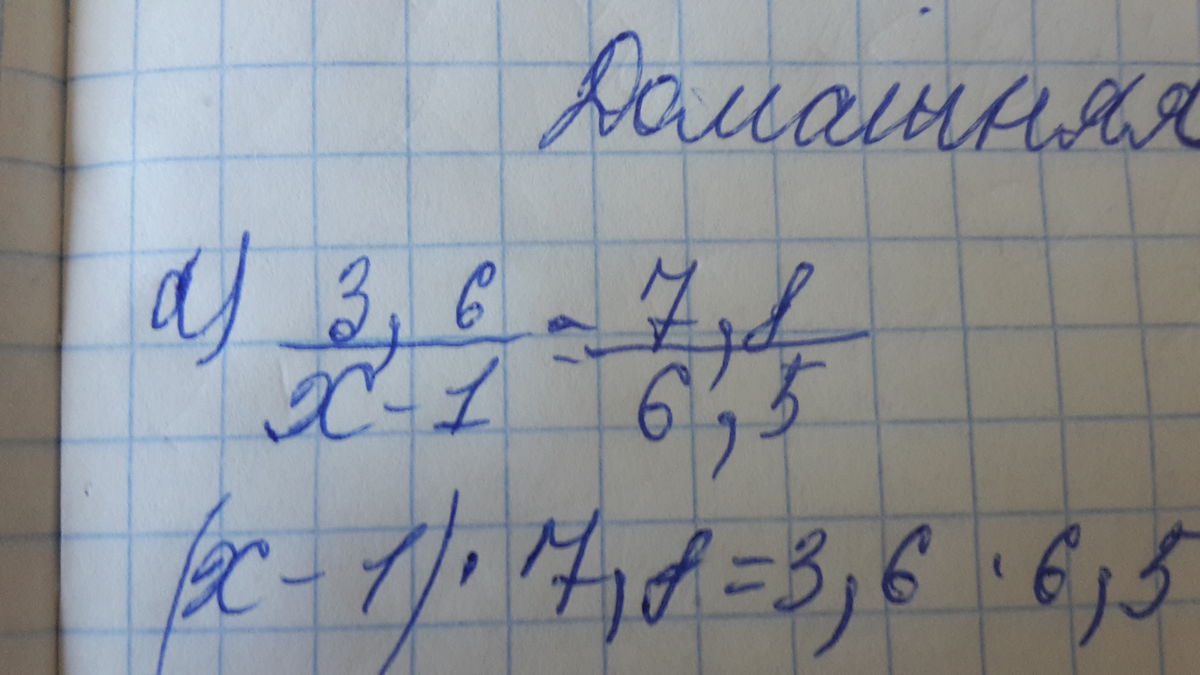 Домашняя
а) 3,6 / х-1 = 7,8 / 6,5
(х-1)·7,8=3,6·6,5